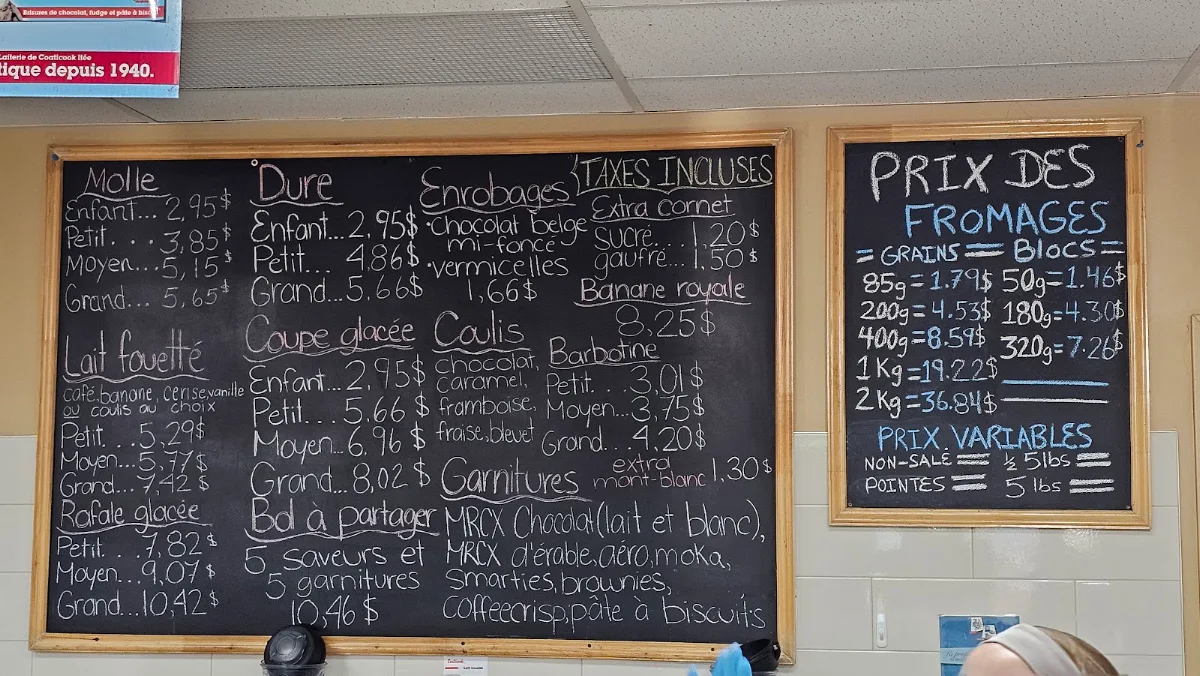 Brisures de chocolat, fudge et pâte à
Laiterie de Coaticook ltée
tique depuis 1940.
Molle
Enfant... 2,95$
Petit. . . 3,85$
Moyen... 5,15$
Grand... 5,65$
Lait fouetté
café, banane, cerise, vanille
ou coulis au choix
Petit.... 5,29$
Moyen... 5,77$
Grand... 7,42$
Rafale glacée
Petit. . . 7,82$
Moyen... 9,07$
Grand... 10,42$
Dure
Enfant... 2,95$
Petit... 4,86$
Grand... 5,66$
Coupe glacée
Enfant... 2,95$
Petit... 5,66$
Moyen.. 6,96$
Grand... 8,02$
Bol à partager
5 saveurs et
5 garnitures
10,46$
Enrobages
•Chocolat belge
mi-foncé
•vermicelles
1,66$
Coulis
chocolat,
caramel,
framboise,
fraise, bleuet
TAXES INCLUSES
Extra cornet
sucré.... 1,20$
gaufré... 1,50$
Banane royale
8,25$
Barbotine
Petit. . . 3,01$
Moyen... 3,75$
Grand... 4,20$
extra
mont-blanc 1,30$
Garnitures
MRCX Chocolat (lait et blanc),
MRCX d'érable, aéro, moka,
smarties, brownies,
coffeecrisp, pâte à biscuits
PRIX DES
FROMAGES
= GRAINS = BLOCS =
85g = 1.79$ 50g = 1.46$
200g = 4.53$ 180g = 4.30$
400g = 8.59$ 320g = 7.26$
1 Kg = 19.22$
2 Kg = 36.84$
PRIX VARIABLES
NON-SALÉ = ½ 5lbs =
POINTES = 5 lbs =